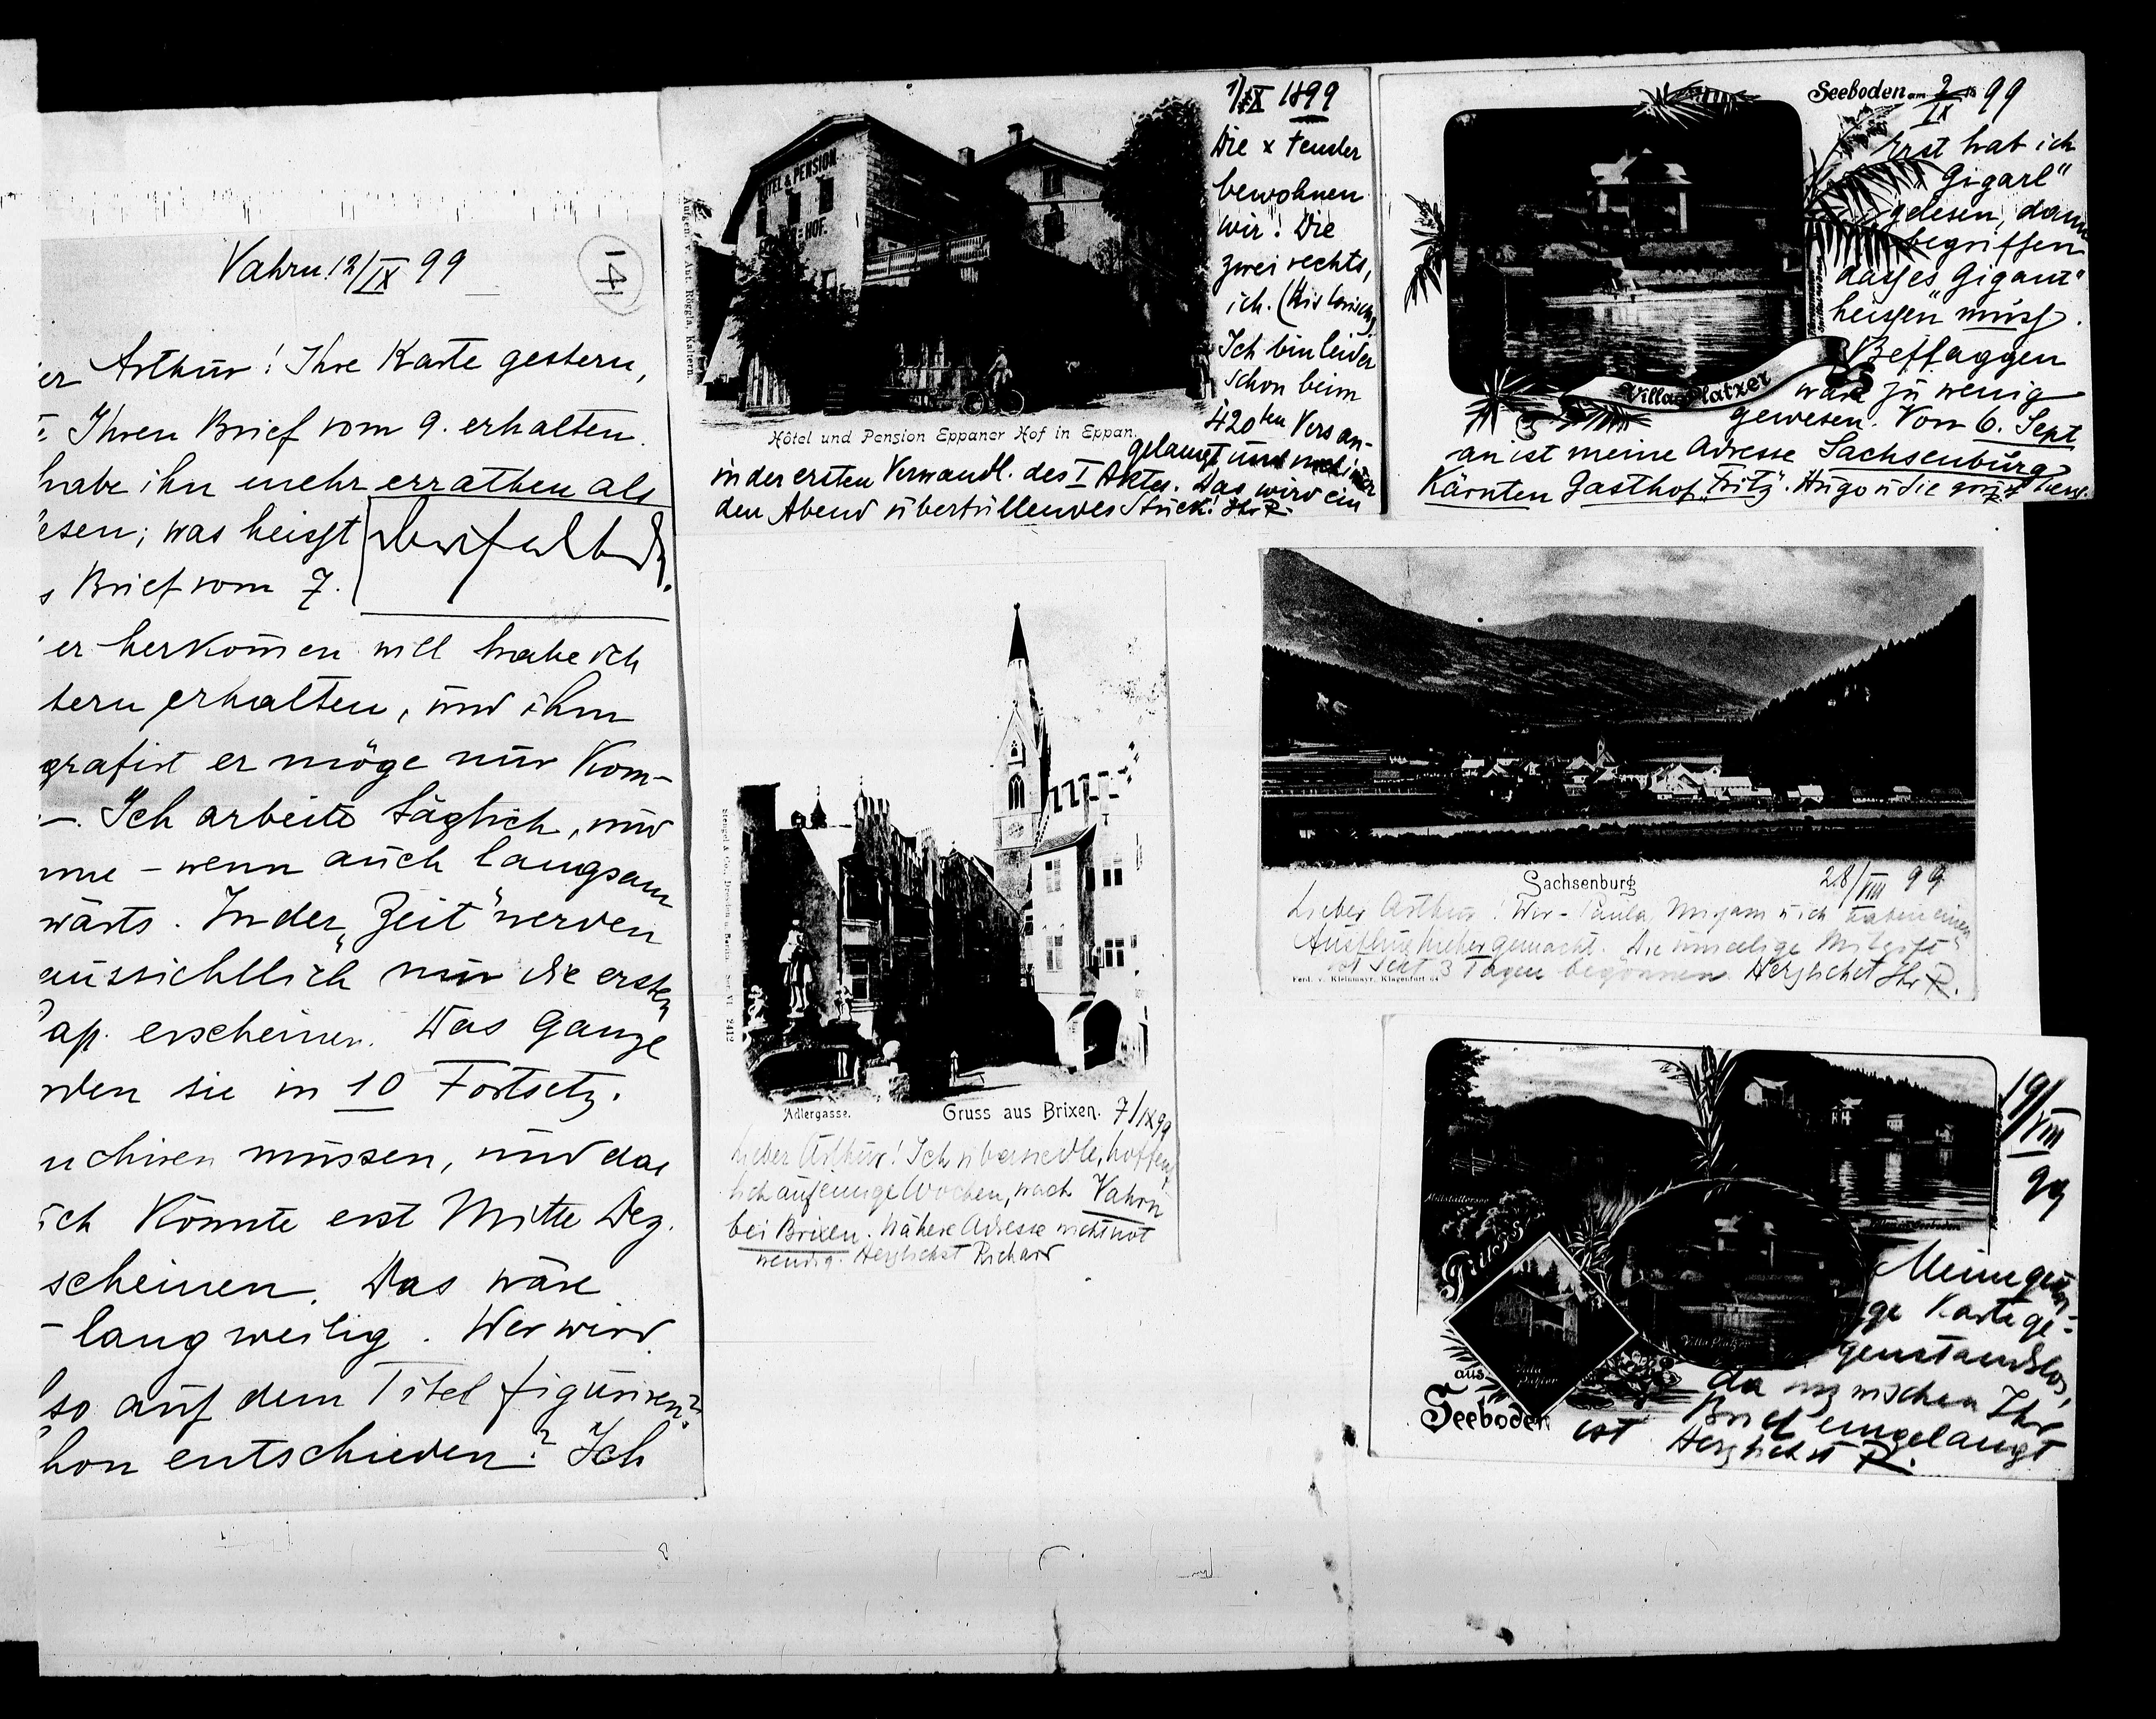 Vahrn 12/IX 99
141
er Arthur! Ihre Karte gestern,
Ihren Brief vom 9. erhalten.
habe ihn mehr errathen als
esen; was heisst
s Brief vom 7.
er herkom̄en will habe ich
tern erhalten, und ihm
grafirt er möge nur Kom-
–. Ich arbeite täglich, und
me – wenn auch langsam
wärts. In der „Zeit" werden
aussichtlich nur die ersten
ap. erscheinen. Das Ganze
rden sie in 10 Fortsetz.
uchiren müssen, und das
ich Könnte erst Mitte Dez.
scheinen. Das wäre
– langweilig. Wer wird
so auf dem Titel figuriren?
hon entschieden? Ich
HOTEL & PENSION
HOF.
Augen. v. Ant. Rögglа, Kaltern.
Hôtel und Pension Eppaner Hof in Eppan.
1/IX 1899
Die x Fenster
bewohnen
wir! Die
zwei rechts,
ich. (Historisch)
Ich bin leider
schon beim
420ten Vers an-
gelangt und noch immer
in der ersten Verwandl. des I Aktes. Das wird ein
den Abend überfüllendes Stück! Ihr R.
Seeboden am 2/IX 99
Erst hab ich
"Gigarl"
gelesen, dann
begriffen
dass es „Gigant"
heissen muss.
Beflaggen
wäre zu wenig
gewesen. Vom 6. Sept
an ist meine Adresse Sachsenburg
Kärnten Gasthof „Fritz". Hugo u die
Villa Platzer
Stengel & Co., Dresden u. Berlin. Ser. VI. 2412
Adlergasse.
Gruss aus Brixen. 7/IX 99
Lieber Arthur! Ich übersiedle, hoffent
lich auf einige Wochen, nach Vahrn
bei Brixen. Nähere Adresse nicht not
wendig. Herzlichst Richard
Sachsenburg
28/VIII 99
Lieber Arthur! Wir – Paula, Mirjam u ich haben einen
Ausflug hieher gemacht. Die
hat seit 3 Tagen begonnen. Herzlichst Ihr R.
Ferd. v. Kleinmayr, Klagenfurt
19/VIII 99
Millstättersee
Gruss
aus
Seeboden
Villa Platzer
Meine gest
ge Karte ge-
genstandslos,
da inzwischen Ihr
Brief eingelangt
ist Herzlichst R.